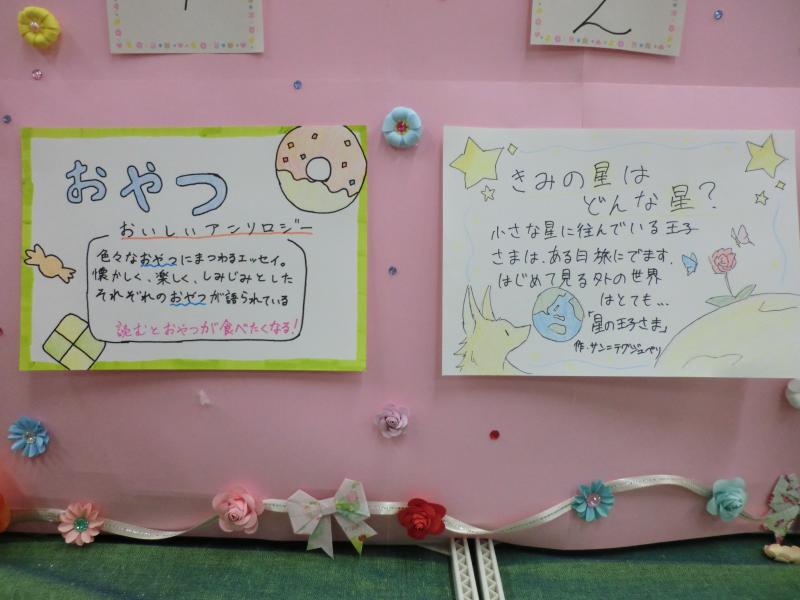 2
おやつ
おいしいアンソロジー
色々なおやつにまつわるエッセイ。
懐かしく、楽しく、しみじみとした
それぞれのおやつが語られている
読むとおやつが食べたくなる!
きみの星は
どんな星?
小さな星に住んでいる王子
さまは、ある日旅にでます。
はじめて見る外の世界
はとても…
「星の王子さま」
作・サン=テグジュペリ